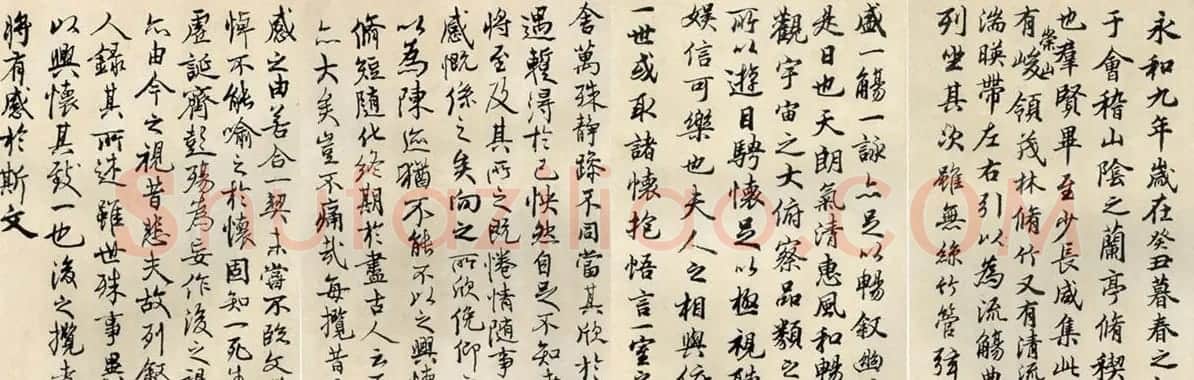 永和九年歲在癸丑暮春之
于會稽山陰之蘭亭脩稧
也羣賢畢至少長咸集此
有崇山峻領茂林脩竹又有清流
湍暎帶左右引以為流觴
列坐其次雖無絲竹管弦
盛一觴一詠亦足以暢叙幽
是日也天朗氣清惠風和暢
觀宇宙之大俯察品類之
所以遊目騁懷足以極視聽
娱信可樂也夫人之相與
一世或取諸懷抱悟言一室
舍萬殊静躁不同當其欣於
遇蹔得於己怏然自足不知
將至及其所之既惓情隨事
感慨係之矣向之所欣俛仰
以為陳迹猶不能不以之興懷
脩短隨化終期於盡古人云
亦大矣豈不痛哉每攬昔
感之由若合一契未嘗不臨文
悼不能喻之於懷固知一死生
虛誕齊彭殤為妄作後之視
亦由今之視昔悲夫故列叙
人錄其所述雖世殊事異
以興懷其致一也後之攬
將有感於斯文
shufaziliao.com